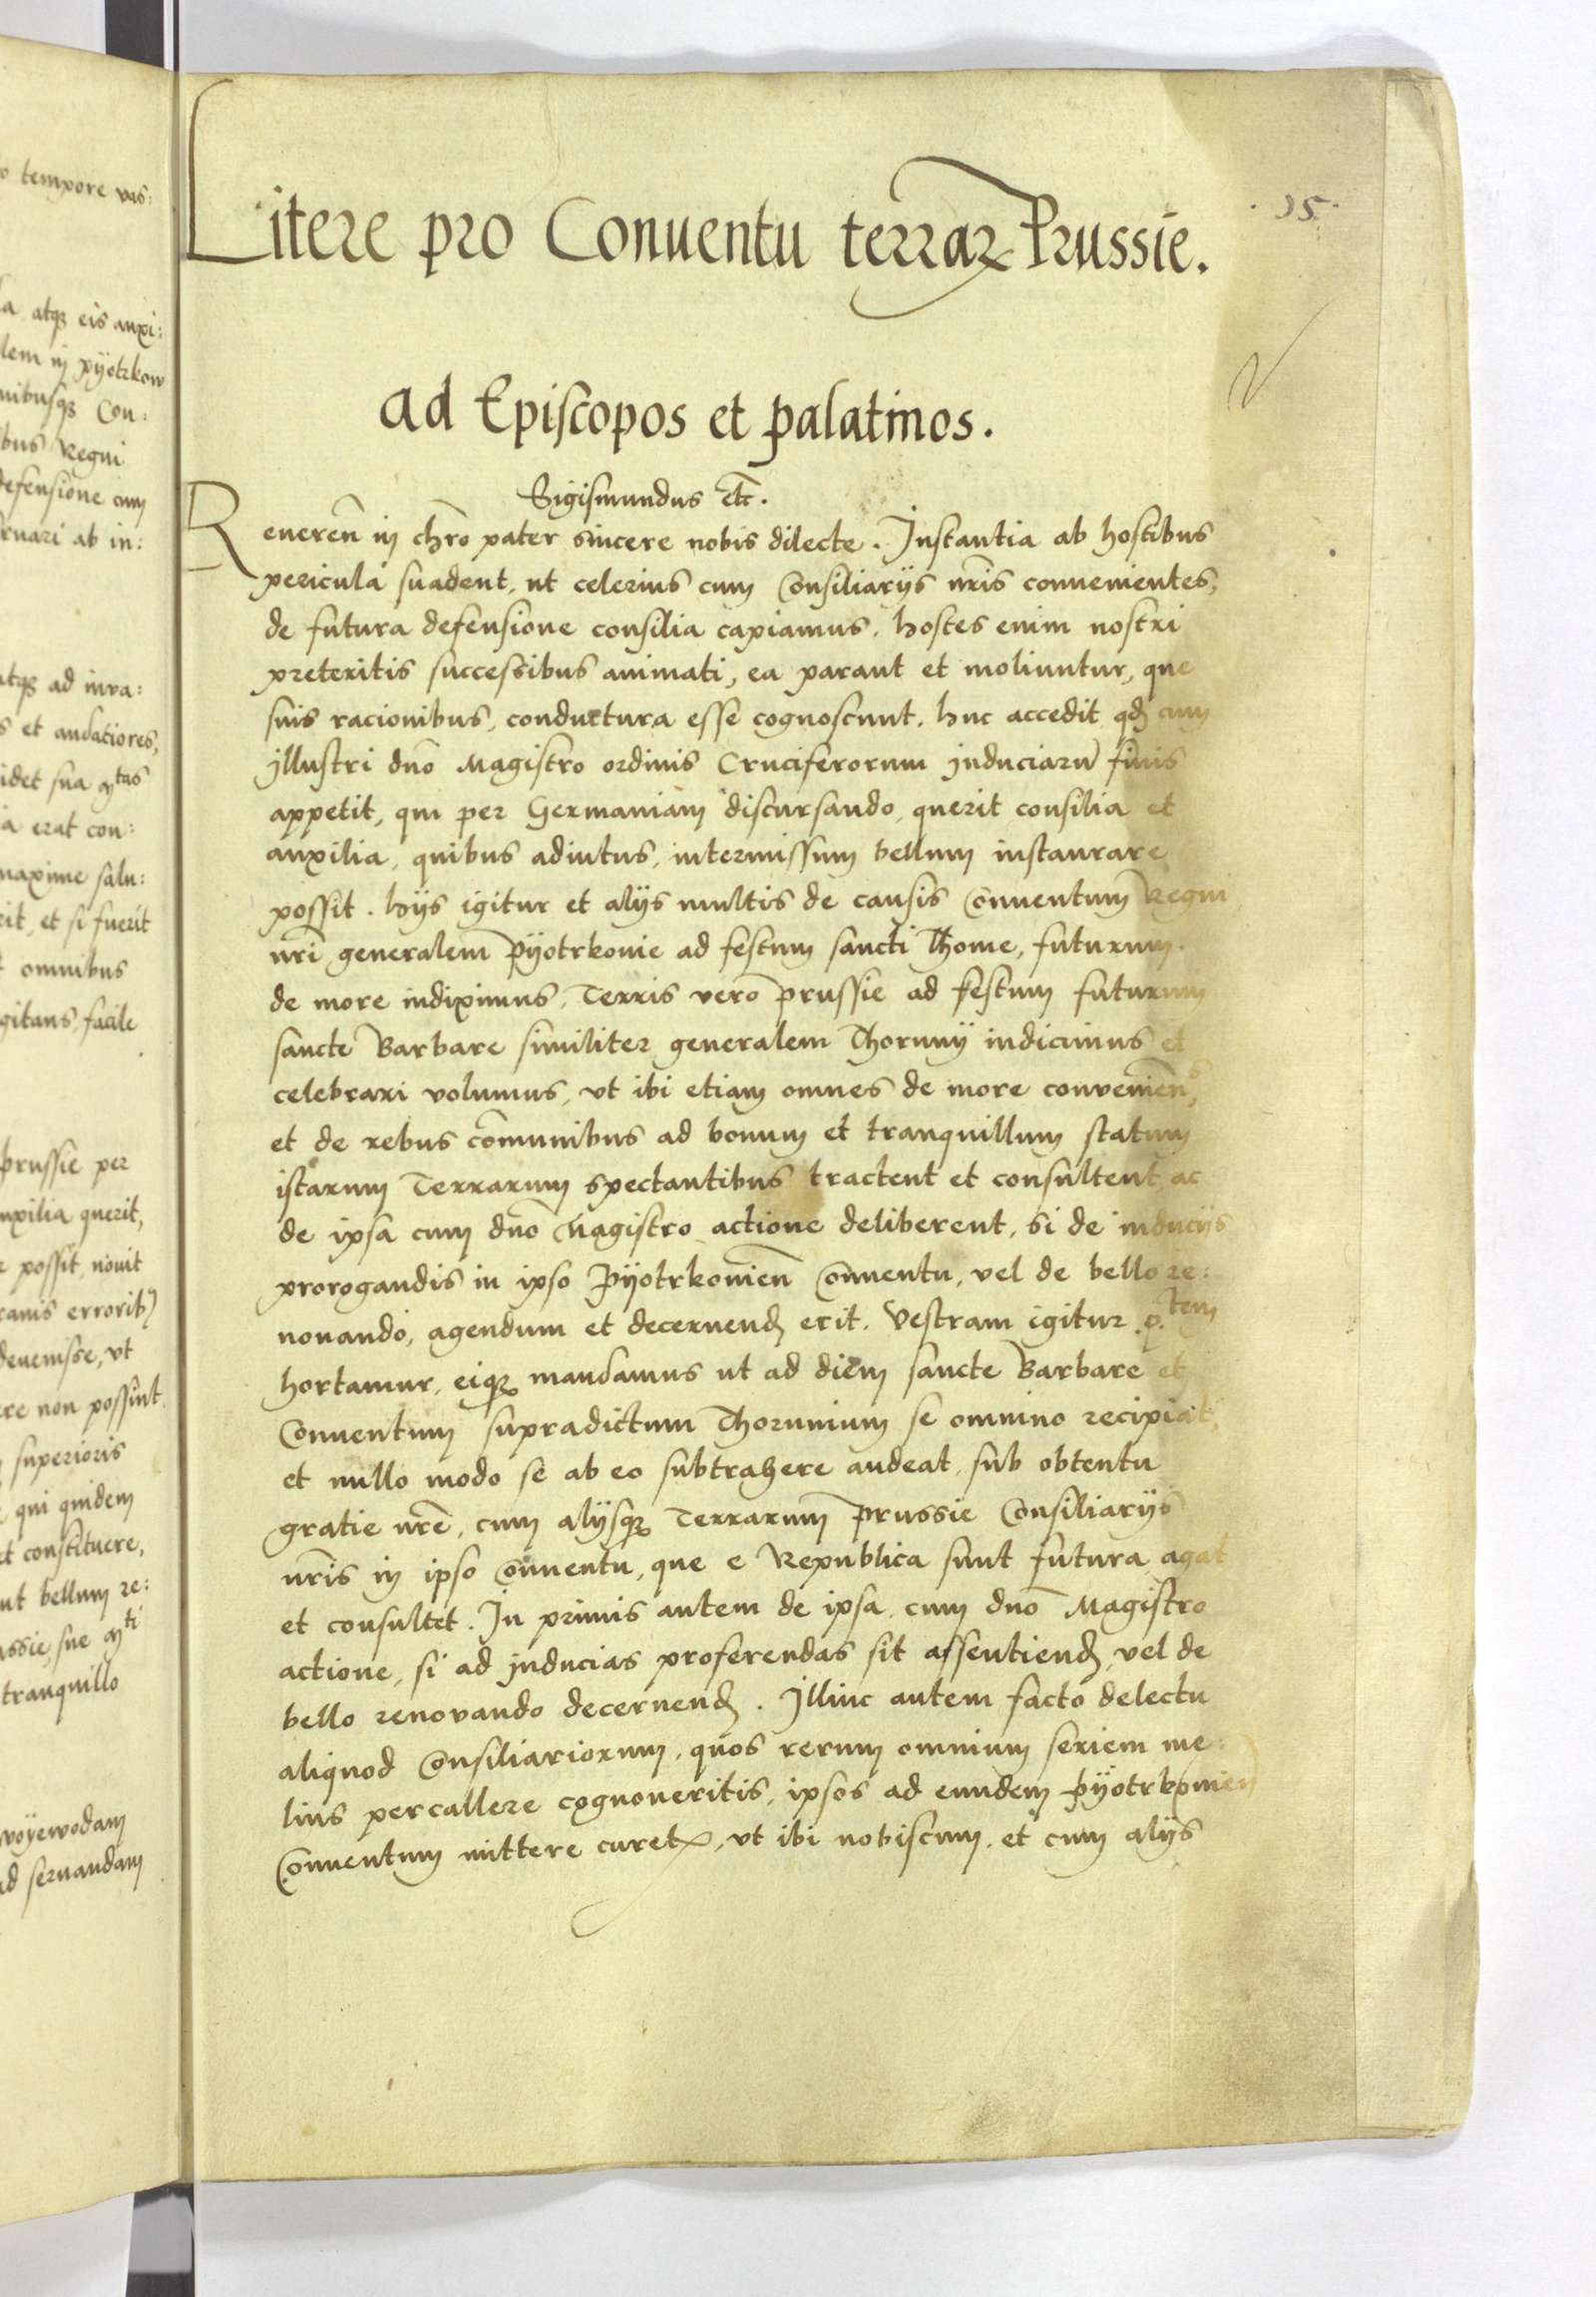 o tempore vas:
a atq3 eis auxi:
lem in pÿotrkow
nibusq3 Con:
bus Regni
defensione cum
ruari ab in:
atq3 ad inva:
s et audatiores,
idet sua mtas
a erat con:
maxime salu:
rit, et si fuerit
omnibus
gitans facile
prussie per
uxilia querit,
possit, nouit
ranis erroribꝫ
devenisse, vt
re non possint.
superioris
qui quidem
et constituere,
ut bellum re:
ussie, sue mti
tranquillo
woÿewodam
ad seruandam
35.
Litere pro Conuentu terraꝝ Prussie.
ad Episcopos et palatinos.
Sigismundus etc̄.
Reueren̄ in chr̄o pater sincere nobis dilecte. Instantia ab hostibus
pericula suadent, ut celerius cum Consiliarijs nr̄is conuenientes,
de futura defensione consilia capiamus. hostes enim nostri
preteritis successibus animati, ea parant et moliuntur, que
suis racionibus, conductura esse cognoscunt. huc accedit qđ cum
jllustri dn̄o Magistro ordinis Cruciferorum jnduciaru᷎ finis
appetit, qui per Germaniam discursando, querit consilia et
auxilia, quibus adiutus, intermissum bellum instaurare
possit. hijs igitur et alijs multis de causis Conuentum Regni
nr̄i generalem Pÿotrkouie ad festum sancti Thome, futurum.
de more indiximus, Terris vero prussie ad festum futurum
sancte Barbare similiter generalem Thorunÿ indicimus et
celebrari volumus, vt ibi etiam omnes de more convenien̄s,
et de rebus com̄unibus ad bonum et tranquillum statum
istarum Terrarum spectantibus tractent et consultent, ac
de ipsa cum dn̄o Magistro actione deliberent, si de inducijs
prorogandis in ipso Pÿotrkouien̄ Conuentu, vel de bello re:
nouando, agendum et decernenđ erit. Vestram igitur p.tem
hortamur, eiqꝫ mandamus ut ad diem sancte Barbare et
Conuentum supradictum Thorunium se omnino recipiat,
et nullo modo se ab eo subtrahere audeat, sub obtentu
gratie nr̄e, cum alijsqꝫ Terrarum prussie Consiliarijs
nr̄is in ipso Conuentu, que e Republica sunt futura, agat
et consultet. In primis autem de ipsa, cum dn̄o Magistro
actione, si ad jnducias proferendas sit assentienđ, vel de
bello renovando decernenđ. Illinc autem facto delectu
aliquod Consiliariorum, quos rerum omnium seriem me:
lius percallere cognoueritis, ipsos ad eundem pÿotrkouien̄
Conuentum mittere curetꝭ, vt ibi nobiscum, et cum alijs